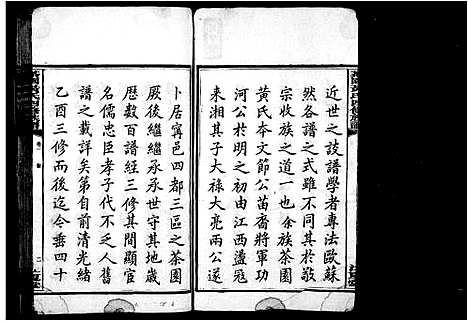 近世之談譜學者專法歐蘇
然各譜之式雖不同其於敬
宗收族之道一也余族茶園
黃氏本文節公苗裔將軍功
河公於明之初由江西盪寇
來湘其子大祿大亮兩公遂
卜居寧邑四都三區之茶園
厥後繼繼承承世守其地歲
歷數百譜經三修其間顯宦
名儒忠臣孝子代不乏人舊
譜之載詳矣第自前清光緒
乙酉三修而後迄今垂四十